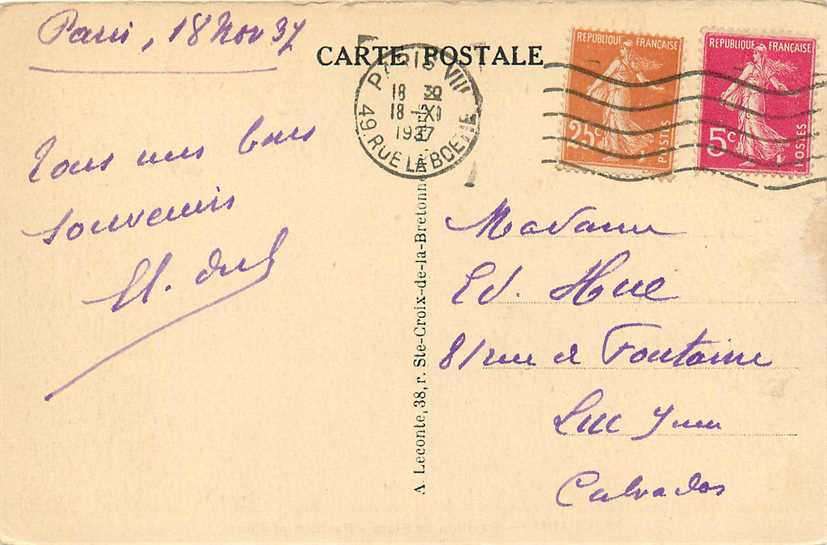 Paris, 18 Nov 37
CARTE POSTALE
PARIS VIII
18 30
18 -XI
1937
49. RUE LA BOETIE
REPUBLIQUE FRANÇAISE
25c
POSTES
REPUBLIQUE FRANÇAISE
5c
POSTES
Tous mes bons
souvenirs
A. Leconte, 38, r. Ste-Croix-de-la-Bretonn
Madame
Ed. Hue
81 rue de Fontaine
Luc
Calvados